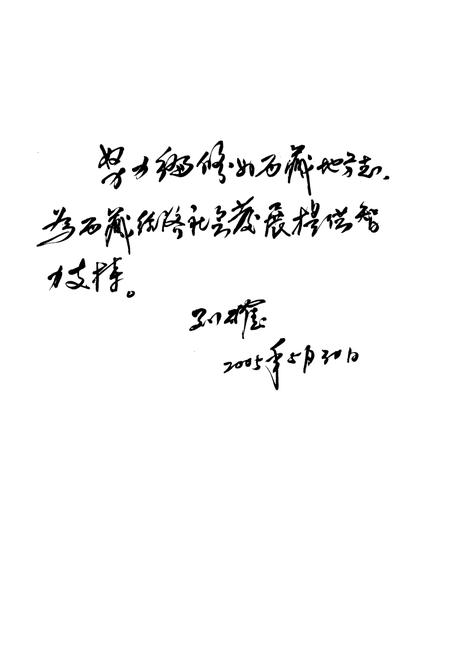 努力编修好西藏地方志,
為西藏经济社会發展提供智
力支持。
2005年5月30日